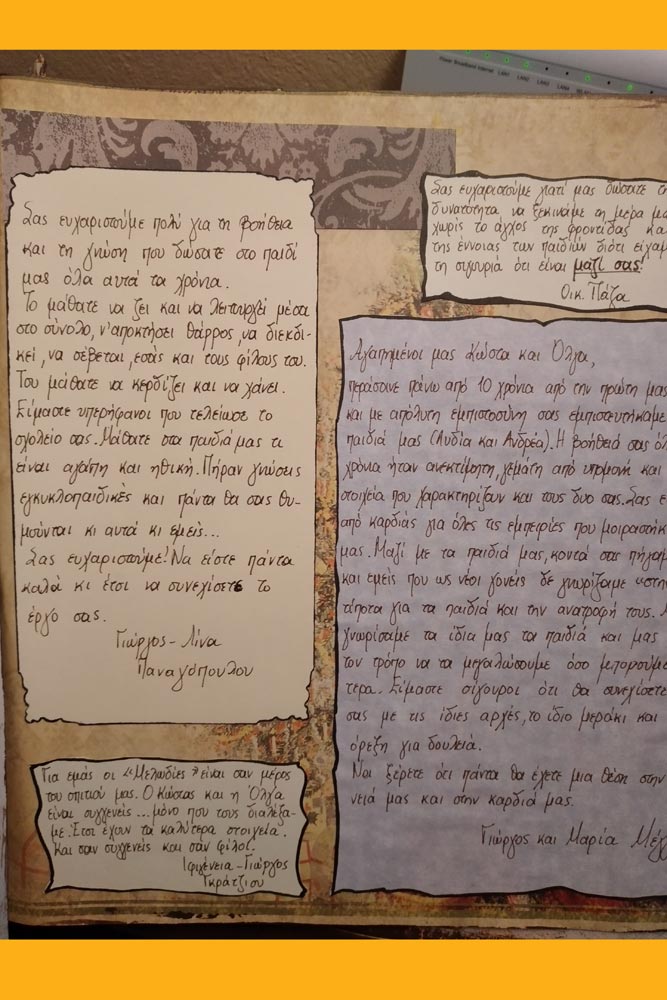 Power Broadband Internet LAN1 LAN2 LAN3 LAN4
Σας ευχαριστούμε πολύ για τη βοήθεια
και τη γνώση που δώσατε στο παιδί
μας όλα αυτά τα χρόνια.
Το μάθατε να ζει και να λειτουργεί μέσα
στο σύνολο, ν'αποκτήσει θάρρος, να διεκδι-
κεί, να σέβεται, εσάς και τους φίλους του.
Του μάθατε να κερδίζει και να χάνει.
Είμαστε υπερήφανοι που τελείωσε το
σχολείο σας. Μάθατε στα παιδιά μας τι
είναι αγάπη και ηθική. Πήραν γνώσεις
εγκυκλοπαιδικές και πάντα θα σας θυ-
μούνται κι αυτά κι εμείς...
Σας ευχαριστούμε! Να είστε πάντα
καλά κι έτσι να συνεχίσετε το
έργο σας.
Γιώργος - Λίνα
Παναγόπουλου
Σας ευχαριστούμε γιατί μας δώσατε
δυνατότητα να ξεκινάμε τη μέρα
χωρίς το άγχος της φροντίδας
της έννοιας των παιδιών διότι
τη σιγουριά ότι είναι μαζί σας!
Οικ. Πάζα
Αγαπημένοι μας Κώστα και Όλγα,
περάσανε πάνω από 10 χρόνια από την πρώτη μας
και με απόλυτη εμπιστοσύνη σας εμπιστευτήκαμε
παιδιά μας (Λυδία και Ανδρέα). Η βοήθειά σας
χρόνια ήταν ανεκτίμητη, γεμάτη από υπομονή και
στοιχεία που χαρακτηρίζουν και τους δυο σας. Σας
από καρδιάς για όλες τις εμπειρίες που
μας. Μαζί με τα παιδιά μας, κοντά σας
και εμείς που ως νέοι γονείς δε γνωρίζαμε
τίποτα για τα παιδιά και την ανατροφή τους.
γνωρίσαμε τα ίδια μας τα παιδιά και μας
τον τρόπο να τα μεγαλώσουμε όσο μπορούμε
τερα. Είμαστε σίγουροι ότι θα συνεχίσετε
σας με τις ίδιες αρχές, το ίδιο μεράκι και
όρεξη για δουλειά.
Να ξέρετε ότι πάντα θα έχετε μια θέση στην
νειά μας και στην καρδιά μας.
Γιώργος και Μαρία
Για εμάς οι «Μελωδίες» είναι σαν μέρος
του σπιτιού μας. Ο Κώστας και η Όλγα
είναι συγγενείς... μόνο που τους διαλέξα-
με. Έτσι έχουν τα καλύτερα στοιχεία.
Και σαν συγγενείς και σαν φίλοι.
Ιφιγένεια - Γιώργος
Γκράτζιου